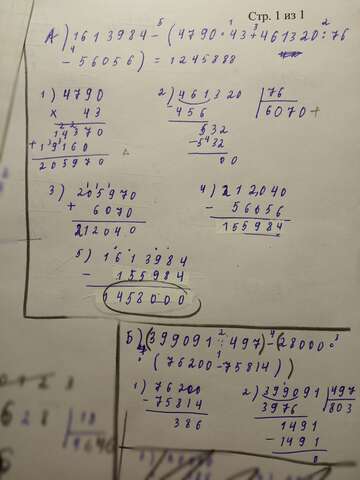 Стр. 1 из 1
А) 1613984 - (4790 · 43 + 461320 : 76
- 56056) = 1245888
1) 4790
x 43
14370
+ 19160
205970
2) 461320 | 76
- 456 | 6070
532
- 532
00
3) 205970
+ 6070
212040
4) 212040
- 56056
155984
5) 1613984
- 155984
1458000
Б) (399091 : 497) - (28000 :
: (76200 - 75814))
1) 76200
- 75814
386
2) 399091 | 497
3976 | 803
1491
- 1491
0